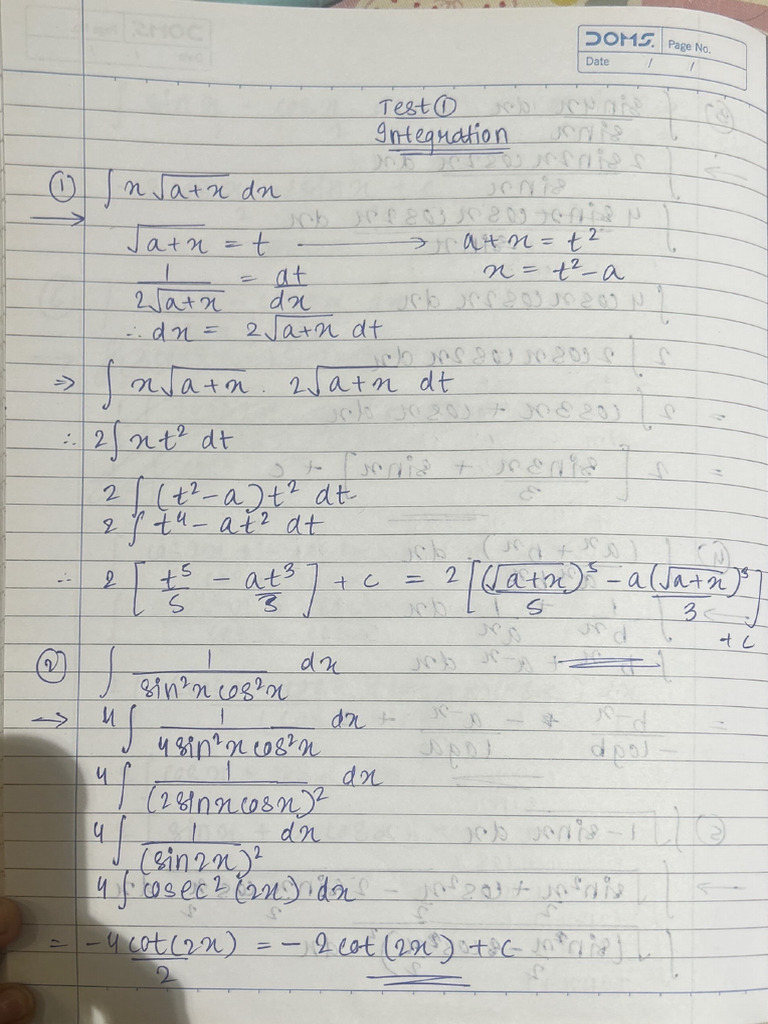 DOMS. Page No.
Date / /
Test ①
Integration
① ∫ x √(a+x) dx
→
√(a+x) = t ⟶ a+x = t²
1/(2√(a+x)) = dt/dx x = t²-a
∴ dx = 2√(a+x) dt
⇒ ∫ x√(a+x) . 2√(a+x) dt
∴ 2∫ xt² dt
2 ∫ (t²-a)t² dt
2 ∫ t⁴ - at² dt
∴ 2 [t⁵/5 - at³/3] + c = 2 [(√(a+x))⁵/5 - a(√(a+x))³/3]
+c
② ∫ 1/(sin²x cos²x) dx
→ 4 ∫ 1/(4sin²x cos²x) dx
4 ∫ 1/(2sinxcosx)² dx
4 ∫ 1/(sin2x)² dx
4 ∫ cosec²(2x) dx
= -4cot(2x)/2 = -2cot(2x) + c